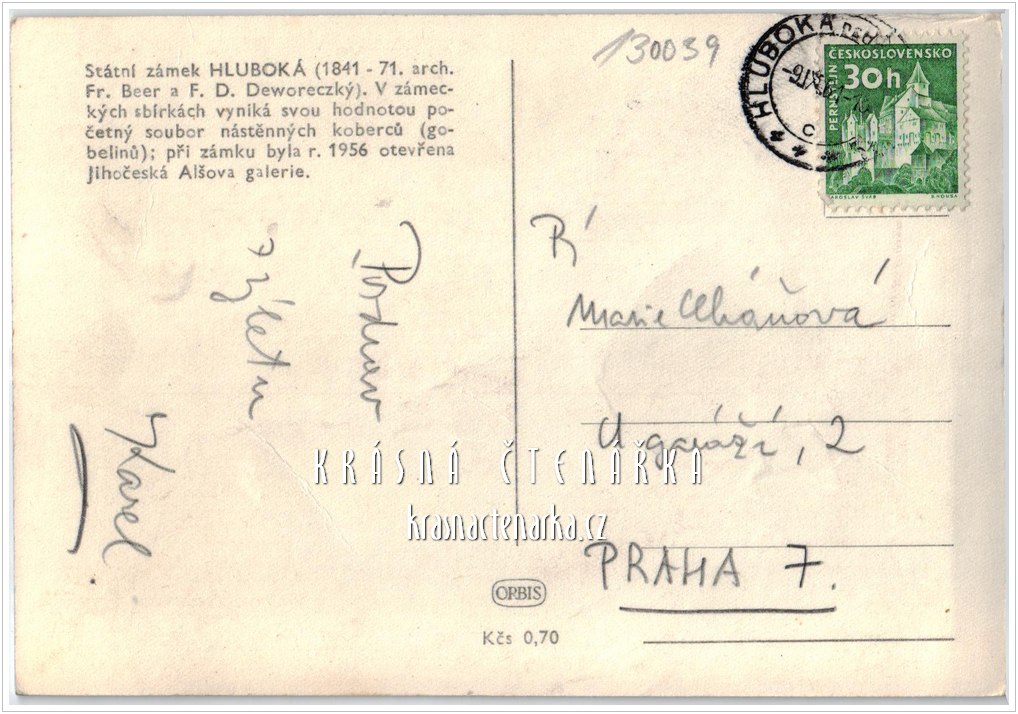 Státní zámek HLUBOKÁ (1841 - 71. arch.
Fr. Beer a F. D. Deworeczký). V zámec-
kých sbírkách vyniká svou hodnotou po-
četný soubor nástěnných koberců (go-
belinů); při zámku byla r. 1956 otevřena
Jihočeská Alšova galerie.
Pozdrav
z výletu
Karel.
130039
HLUBOKÁ
ČESKOSLOVENSKO
30h
PERNŠTEJN
JAROSLAV ŠVÁB
Marie
U garáží, 2
PRAHA 7.
KRÁSNÁ ČTENÁŘKA
krasnactenarka.cz
ORBIS
Kčs 0,70